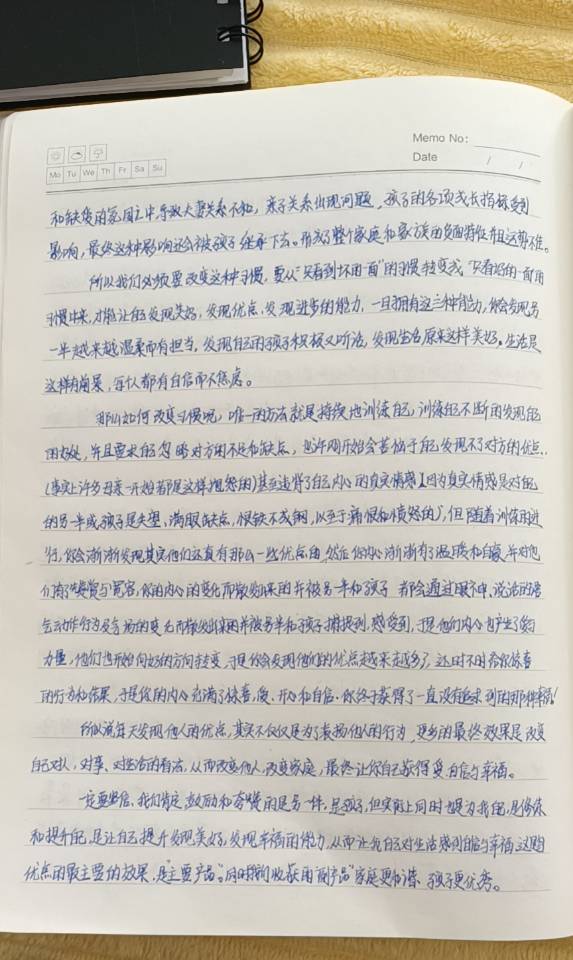 Memo No:
Date / /
Mo Tu We Th Fr Sa Su
和缺失的家风之中,导致夫妻关系不和,亲子关系出现问题,孩子的各项成长指标受到
影响,最终这种影响还会被孩子继承下去。形成了整个家庭和家族的负面特性并且运势不佳。
所以我们必须要改变这种习惯,要从"只看到坏的一面"的习惯转变成"只看好的一面的
习惯中来,才能让自己发现美好,发现优点,发现进步的能力,一旦拥有这三种能力,你会发现另
一半越来越温柔而有担当,发现自己的孩子积极又听话,发现生活原来这样美好,生活是
这样有前景,每个人都有自信而不焦虑。
那么如何改变习惯呢,唯一的方法就是持续地训练自己,训练自己不断的发现
的好处,并且要求自己忽略对方的不足和缺点,也许刚开始会苦恼于自己发现不了对方的优点,
(事实上许多母亲一开始都是这样抱怨的)甚至违背了自己内心的真实情感【因为真实情感是对自己
的另一半或孩子是失望、满眼缺点,恨铁不成钢,以至于痛恨和愤怒的】,但随着训练的进
行,你会渐渐发现其实他们还真有那么一些优点的,然后你的内心渐渐有了温暖和自豪,并对他
们有了赞赏与宽容,你的内心的变化而散发出来的并被另一半和孩子都会通过眼神,说话的语
气动作行为及言语的变化而散发出来的并被另一半和孩子捕捉到,感受到,于是他们内心也产生了
力量,他们也开始向好的方向转变,于是你会发现他们的优点越来越多了,还时不时给你惊喜
的行为和结果,于是你的内心充满了惊喜,爱、开心和自信。你终于获得了一直没有追求到的那种幸福!
所以说每天发现他人的优点,其实不仅仅是为了表扬他人的行为,更多的最终效果是改变
自己对人,对事、对生活的看法,从而改变他人,改变家庭,最终让你自己获得爱、自信与幸福。
一定要坚信,我们肯定、鼓励和夸赞的是另一件,是孩子,但实际上同时也是为我自己,是修炼
和提升自己,是让自己提升发现美好,发现幸福的能力,从而让我自己对生活感到自信与幸福,这是
优点的最主要的效果,是"主要产品"。同时我们收获的"副产品"家庭更和谐、孩子更优秀。